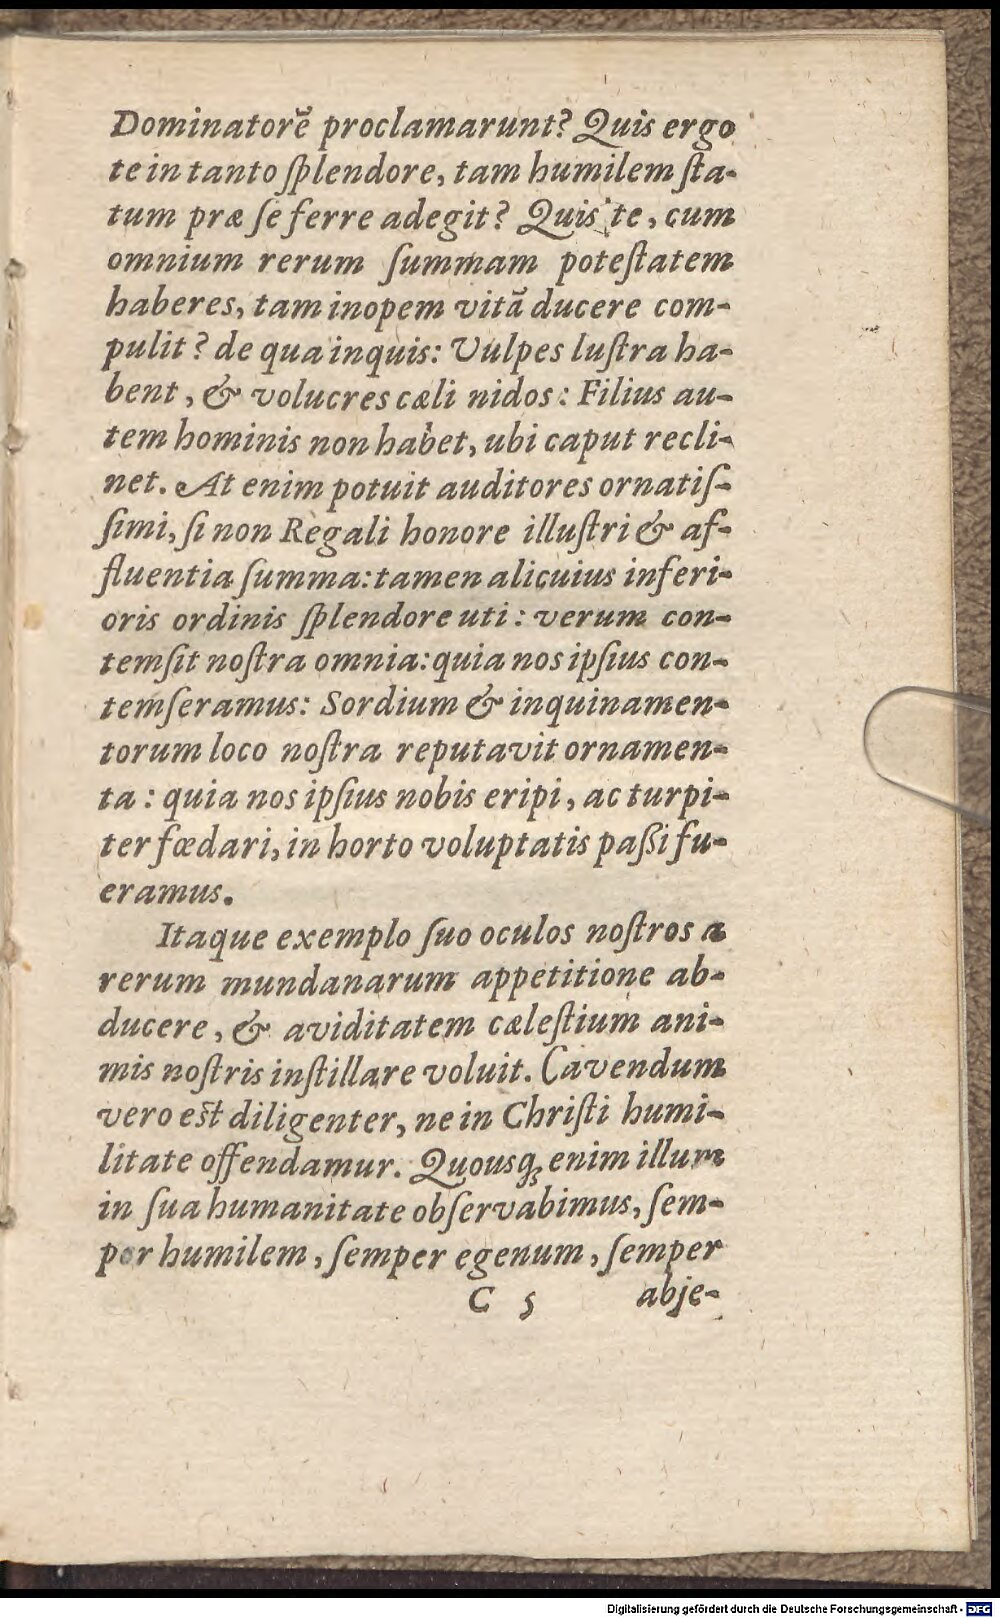 Dominatorē proclamarunt? Quis ergo
te in tanto ſplendore, tam humilem ſta-
tum præ ſe ferre adegit? Quis te, cum
omnium rerum ſummam poteſtatem
haberes, tam inopem vitā ducere com-
pulit? de qua inquis: Vulpes luſtra ha-
bent, & volucres cæli nidos: Filius au-
tem hominis non habet, ubi caput recli-
net. At enim potuit auditores ornatiſ-
ſimi, ſi non Regali honore illuſtri & af-
fluentia ſumma: tamen alicuius inferi-
oris ordinis ſplendore uti: verum con-
temſit noſtra omnia: quia nos ipſius con-
temſeramus: Sordium & inquinamen-
torum loco noſtra reputavit ornamen-
ta: quia nos ipſius nobis eripi, ac turpi-
ter fœdari, in horto voluptatis paßi fu-
eramus.
Itaque exemplo ſuo oculos noſtros a
rerum mundanarum appetitione ab-
ducere, & aviditatem cæleſtium ani-
mis noſtris inſtillare voluit. Cavendum
vero eſt diligenter, ne in Chriſti humi-
litate offendamur. Quousq; enim illum
in ſua humanitate obſervabimus, ſem-
per humilem, ſemper egenum, ſemper
C 5 abje-
Digitalisierung gefördert durch die Deutsche Forschungsgemeinschaft - DFG